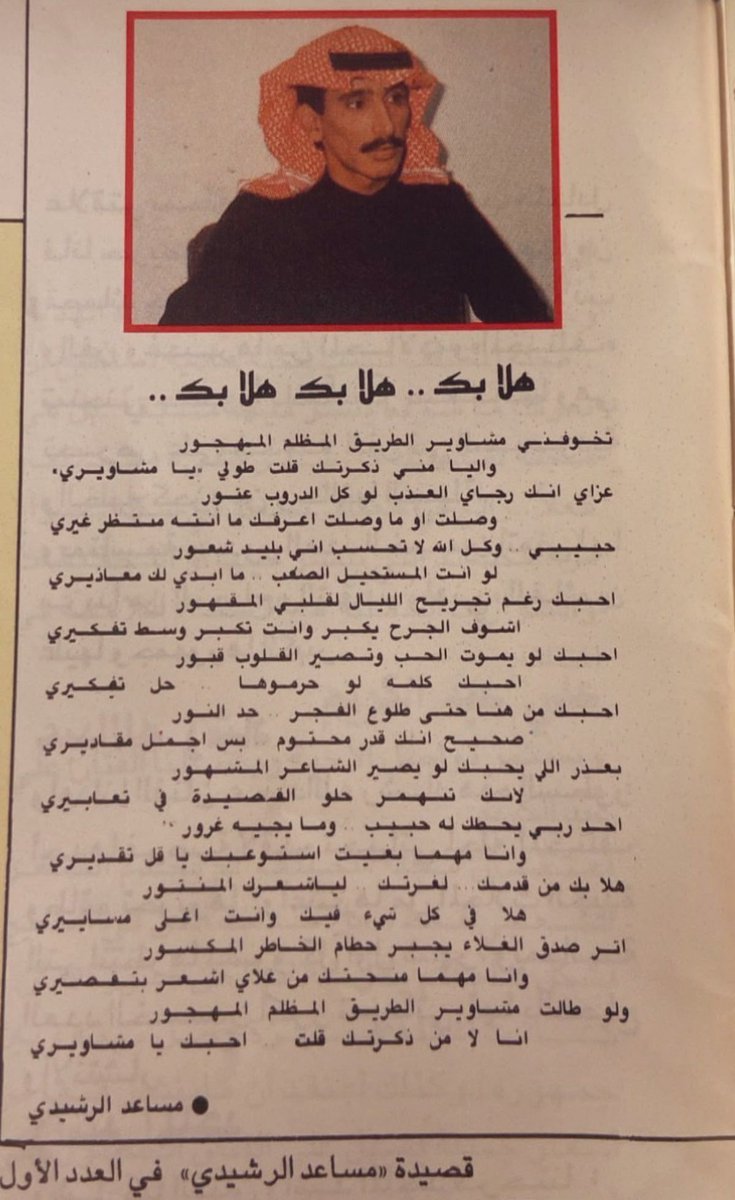 هلا بك .. هلا بك هلا بك ..
تخوفني مشاوير الطريق المظلم المهجور
واليا مني ذكرتك قلت طولي «يا مشاويري»
عزاي انك رجاي العذب لو كل الدروب عثور
وصلت او ما وصلت اعرفك ما انته منتظر غيري
حبيبي .. وكل الله لا تحسب اني بليد شعور
لو انت المستحيل الصعب .. ما ابدي لك معاذيري
احبك رغم تجريح الليال لقلبي المقهور
اشوف الجرح يكبر وانت تكبر وسط تفكيري
احبك لو يموت الحب وتصير القلوب قبور
احبك كلمه لو حرموها .. حل تفكيري
احبك من هنا حتى طلوع الفجر .. حد النور
صحيح انك قدر محتوم بس اجمل مقاديري
بعذر اللي يحبك لو يصير الشاعر المشهور
لانك تسهمر حلو القصيدة في تعابيري
احد ربي يحطك له حبيب .. وما يجيه غرور ..
وانا مهما بغيت استوعبك يا قل تقديري
هلا بك من قدمك .. لغرتك .. لياشعرك المنثور
هلا في كل شيء فيك وأنت اغلى مساييري
اثر صدق الغلاء يجبر حطام الخاطر المكسور
وانا مهما منحتك من غلاي اشعر بتقصيري
ولو طالت مشاوير الطريق المظلم المهجور
انا لا من ذكرتك قلت .. احبك يا مشاويري
● مساعد الرشيدي
قصيدة «مساعد الرشيدي» في العدد الأول